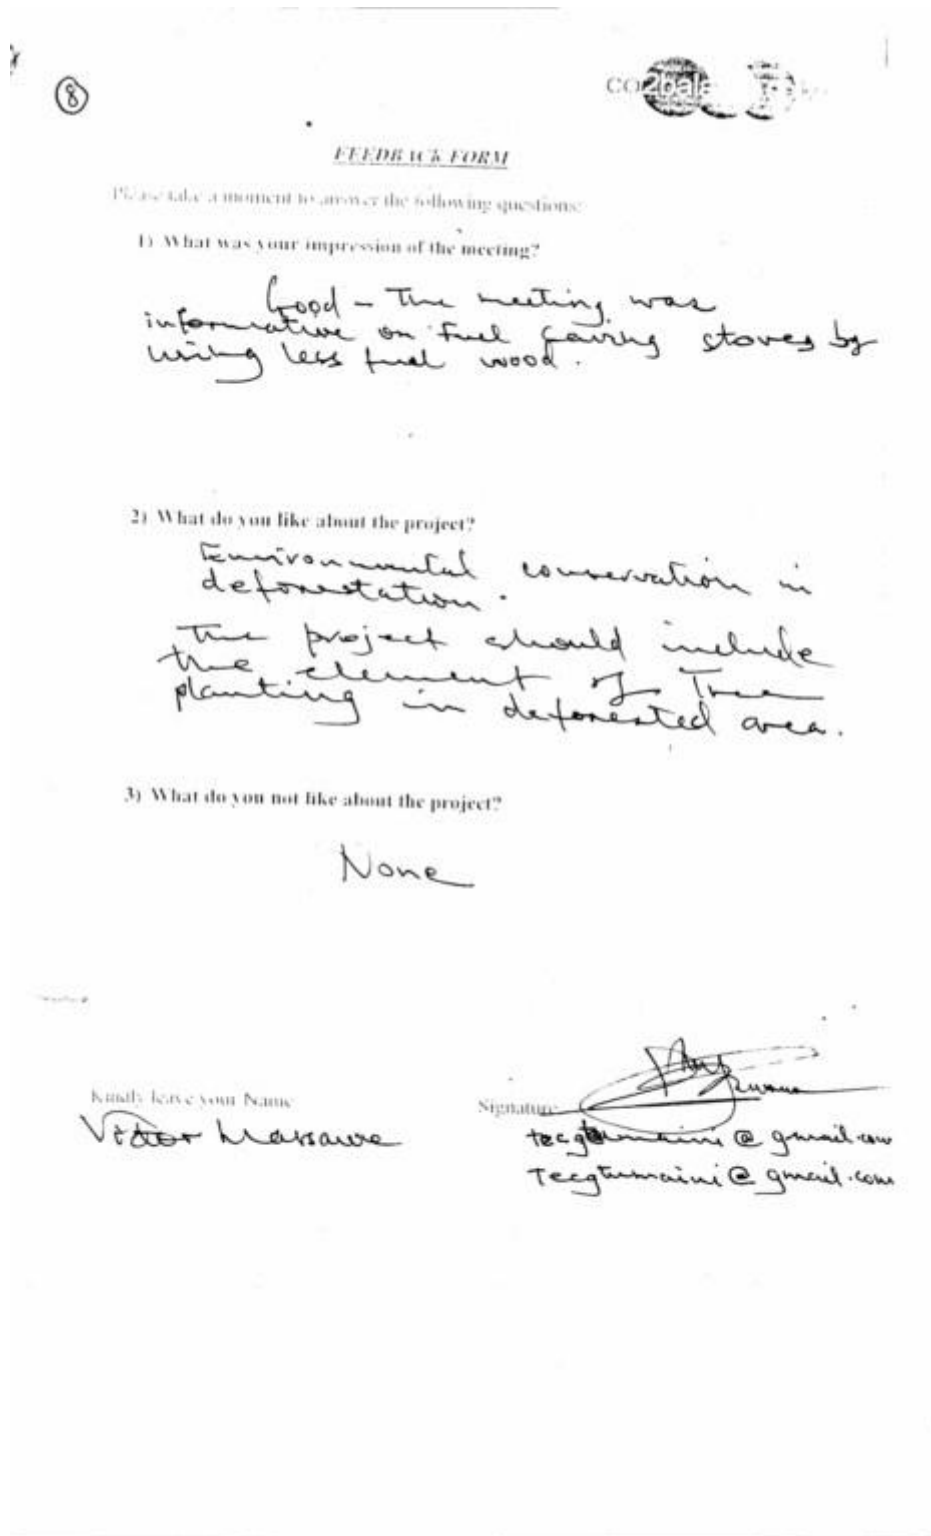 8
CO2bala
FEEDBACK FORM
Please take a moment to answer the following questions:
1) What was your impression of the meeting?
Good - The meeting was
informative on Fuel saving stoves by
using less fuel wood.
2) What do you like about the project?
Environmental conservation in
deforestation.
The project should include
the element of Tree
planting in deforested area.
3) What do you not like about the project?
None
Kindly leave your Name
Signature
Victor Massawe
@gmail.com
Tecgtumaini@gmail.com